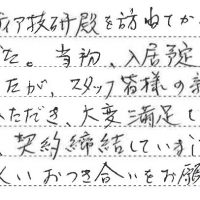 ティア技研殿を訪ねてか
た。当初、入居予定
たが、スタッフ皆様の親
ただき、大変満足し
、契約締結していま
くいおつき合いをお願